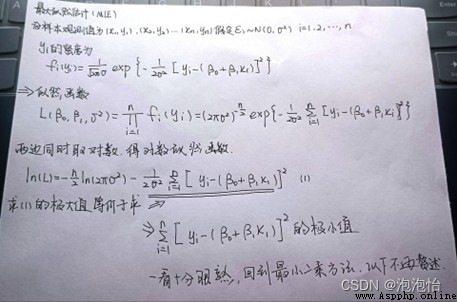 最大似然估计(MLE)
令样本观测值为(x₁,y₁),(x₂,y₂)…(xn,yn)假定εᵢ~N(0,σ²) i=1,2,…,n
yᵢ的密度为
fᵢ(yᵢ)=1/(√2πσ) exp{-1/(2σ²)[yᵢ-(β₀+β₁xᵢ)]²}
⇒似然函数
L(β₀,β₁,σ²)=∏ⁿᵢ₌₁ fᵢ(yᵢ)=(2πσ²)^(-n/2) exp{-1/(2σ²) Σⁿᵢ₌₁[yᵢ-(β₀+β₁xᵢ)]²}
两边同时取对数,得对数似然函数.
ln(L)=-n/2 ln(2πσ²)-1/(2σ²) Σⁿᵢ₌₁[yᵢ-(β₀+β₁xᵢ)]² (1)
求(1)的极大值等价于求 ⇒
⇒Σⁿᵢ₌₁[yᵢ-(β₀+β₁xᵢ)]²的极小值
一看十分眼熟,回到最小二乘方法.以下不再赘述.
CSDN @泡泡怡
www.Aspphp.online